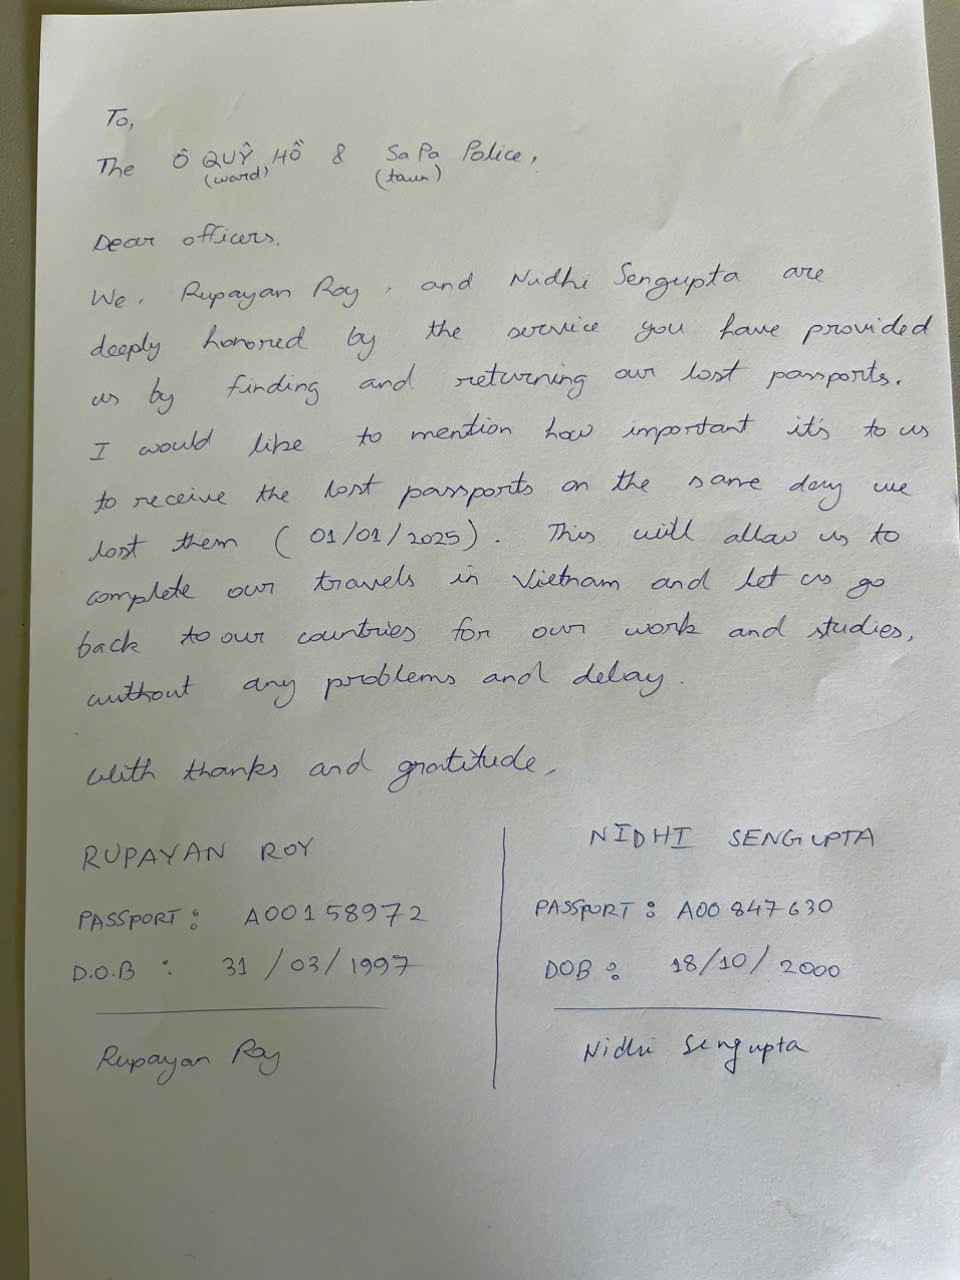 To,
The Ô QUÝ HỒ & Sa Pa Police,
(ward) (town)
Dear officers.
We, Rupayan Roy, and Nidhi Sengupta are
deeply honored by the service you have provided
us by finding and returning our lost passports.
I would like to mention how important it's to us
to receive the lost passports on the same day we
lost them (01/01/2025). This will allow us to
complete our travels in Vietnam and let us go
back to our countries for our work and studies,
without any problems and delay.
With thanks and gratitude,
RUPAYAN ROY
PASSPORT: A00158972
D.O.B : 31/03/1997
Rupayan Roy
NIDHI SENGUPTA
PASSPORT: A00847630
DOB: 18/10/2000
Nidhi Sengupta